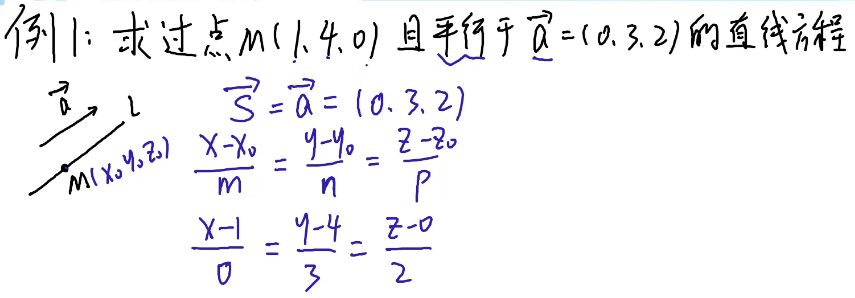 例1: 求过点M(1、4、0) 且平行于 $\vec{a}$=(0、3、2)的直线方程
$\vec{a}$ L
M(x₀ y₀ z₀)
$\vec{S}=\vec{a}$=(0、3、2)
$\frac{x-x_0}{m}=\frac{y-y_0}{n}=\frac{z-z_0}{p}$
$\frac{x-1}{0}=\frac{y-4}{3}=\frac{z-0}{2}$